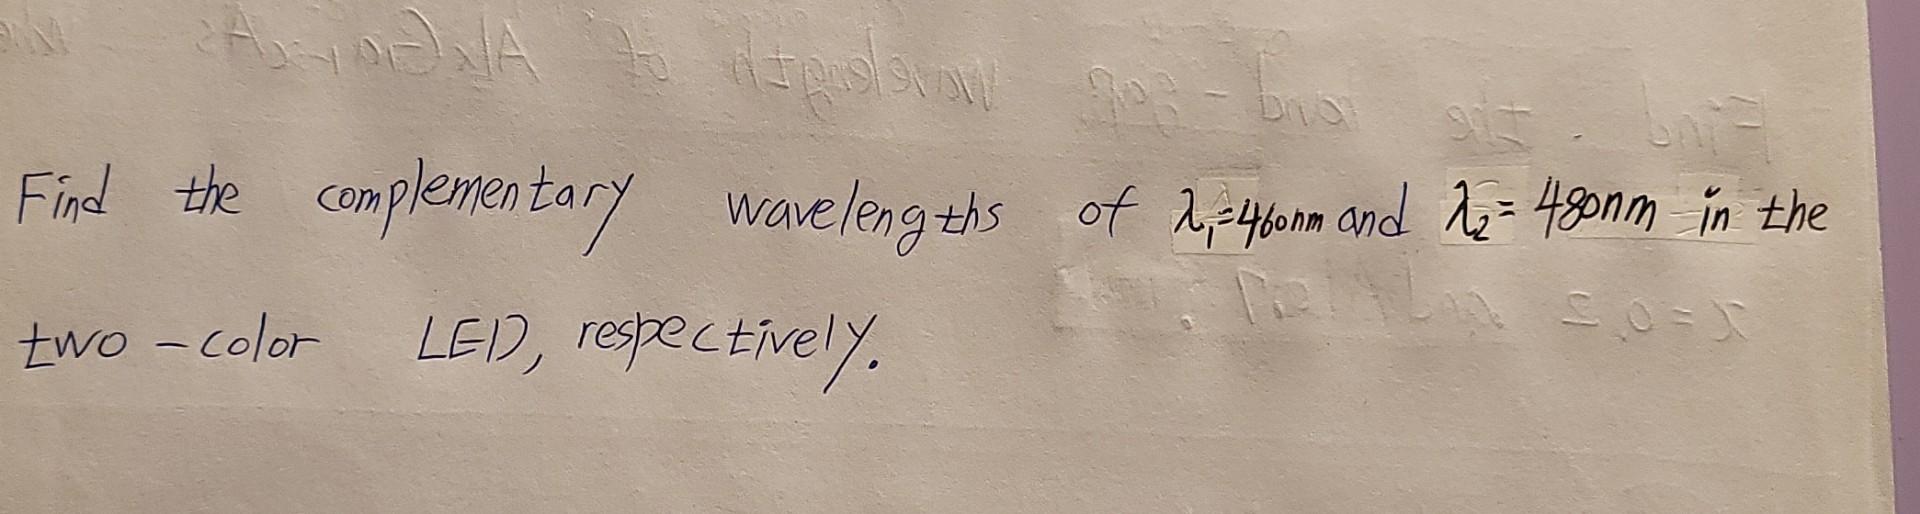 Find the complementary wavelengths of λ₁=460nm and λ₂= 480nm in the
two-color LED, respectively.